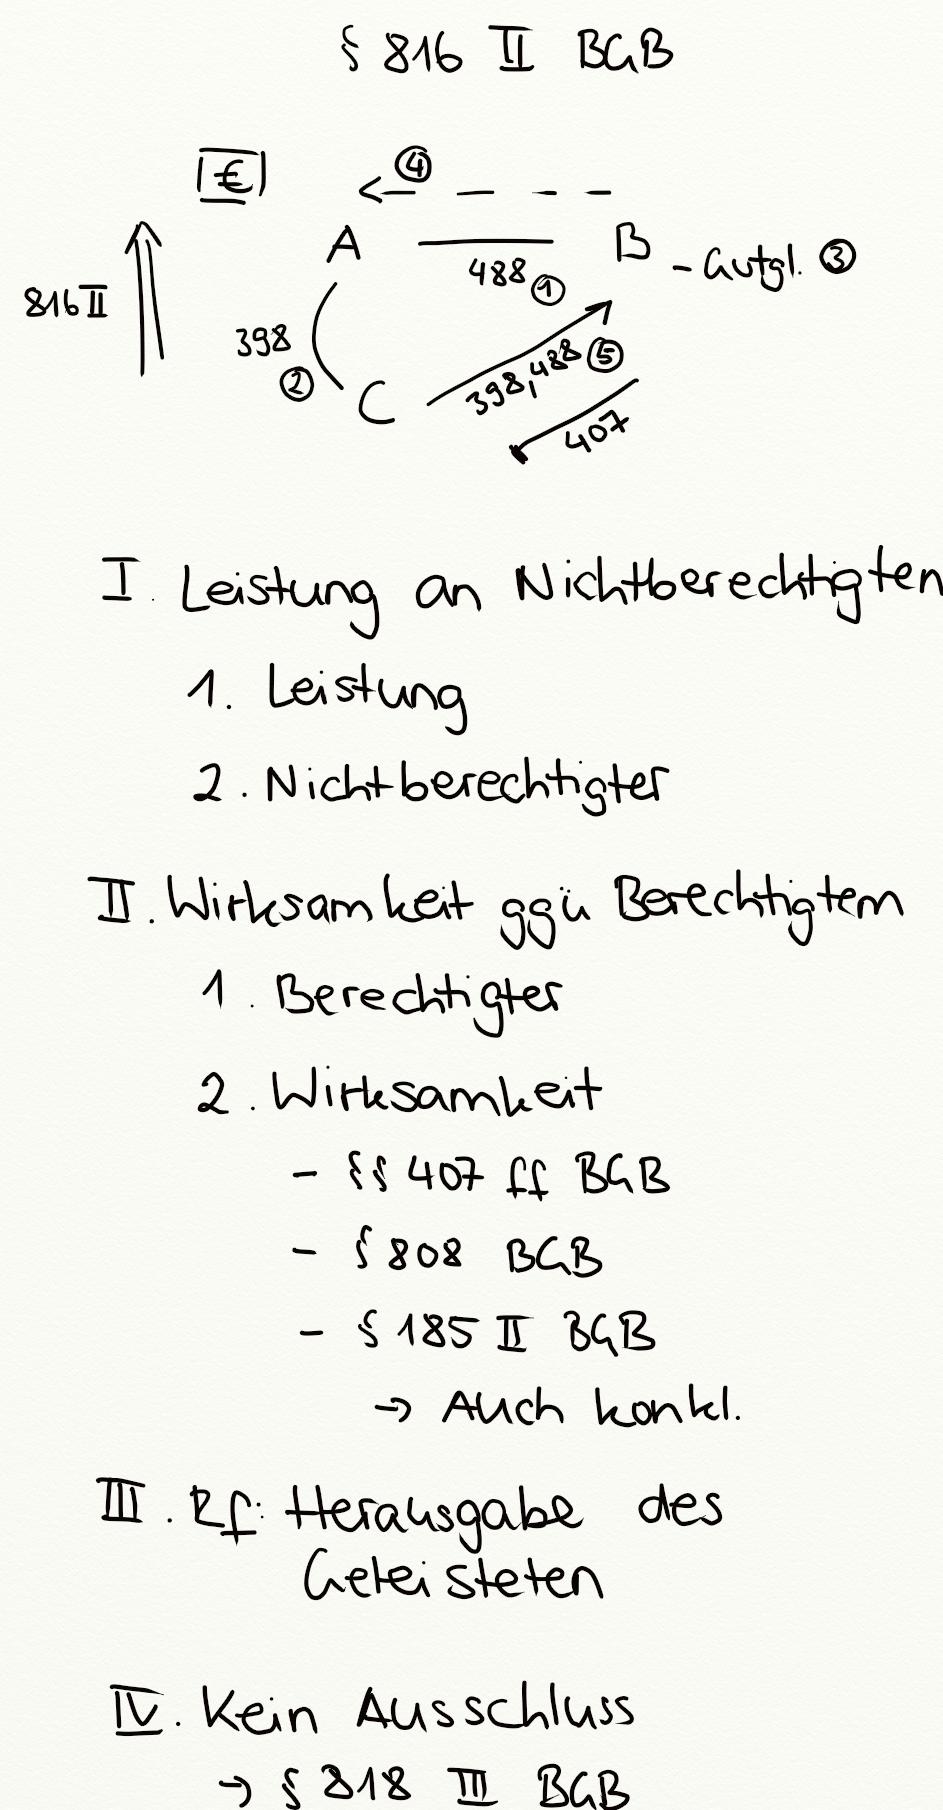 § 816 II BGB
€
④
A
B
- Gutgl. ③
488 ①
816 II
398
②
C
398, 488 ⑤
407
I. Leistung an Nichtberechtigten
1. Leistung
2. Nichtberechtigter
II. Wirksamkeit ggü Berechtigtem
1. Berechtigter
2. Wirksamkeit
- §§ 407 ff BGB
- § 808 BGB
- § 185 II BGB
→ Auch konkl.
III. Rf: Herausgabe des
Geleisteten
IV. Kein Ausschluss
→ § 818 III BGB